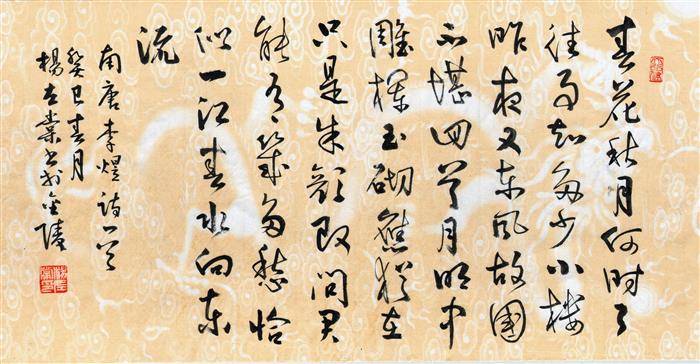 春花秋月何时了
往事知多少小樓
昨夜又东风故國
不堪回首月明中
雕欄玉砌應猶在
只是朱颜改问君
能有幾多愁恰
似一江春水向东
流
南唐李煜诗一首
癸巳春月
楊书於金陵